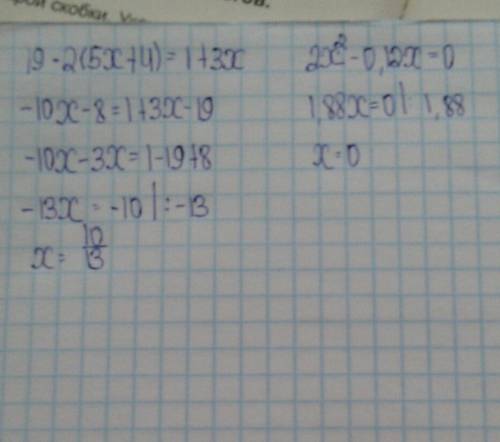 рой скобки.
19 - 2(5x+4) = 1+3x
-10x-8=1+3x-19
-10x-3x=1-19+8
-13x = -10 | :-13
x = 10/13
2x² - 0,12x = 0
1,88x=0 | : 1,88
x = 0